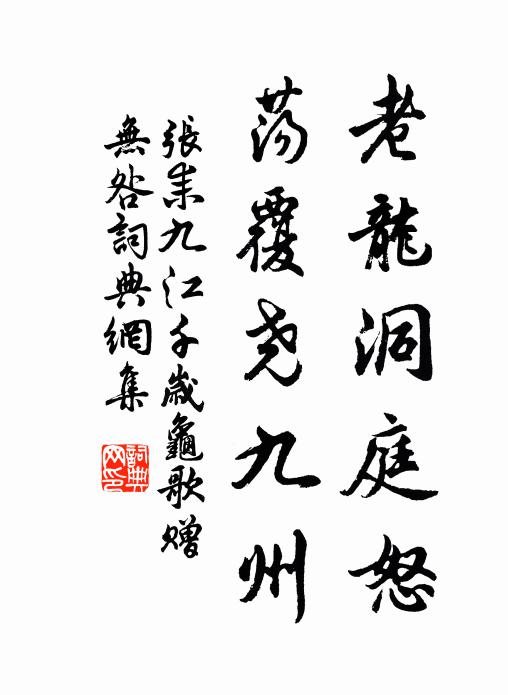 老龍洞庭怒
蕩覆尭九州
張耒九江千歲龜歌贈
無咎詞典網集
詞典
网印